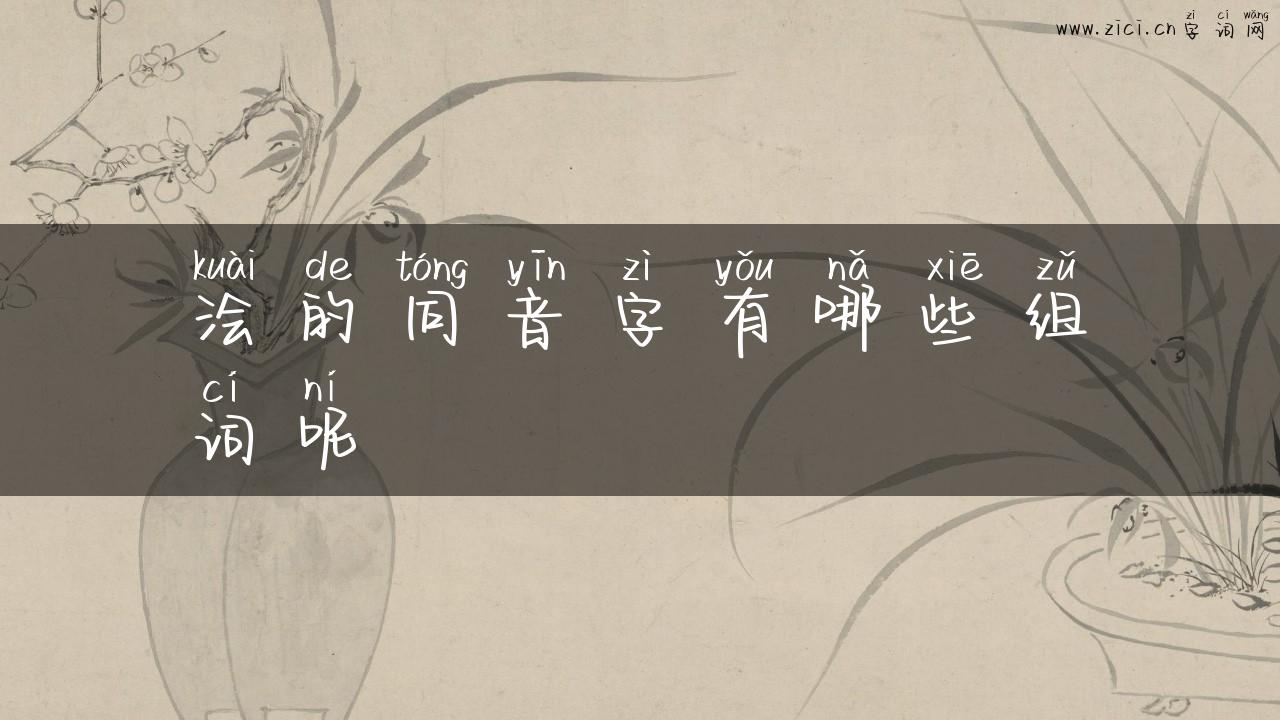 zì cí wǎng
www.zici.cn 字词网
kuài de tóng yīn zì yǒu nǎ xiē zǔ
浍的同音字有哪些组
cí ní
词呢